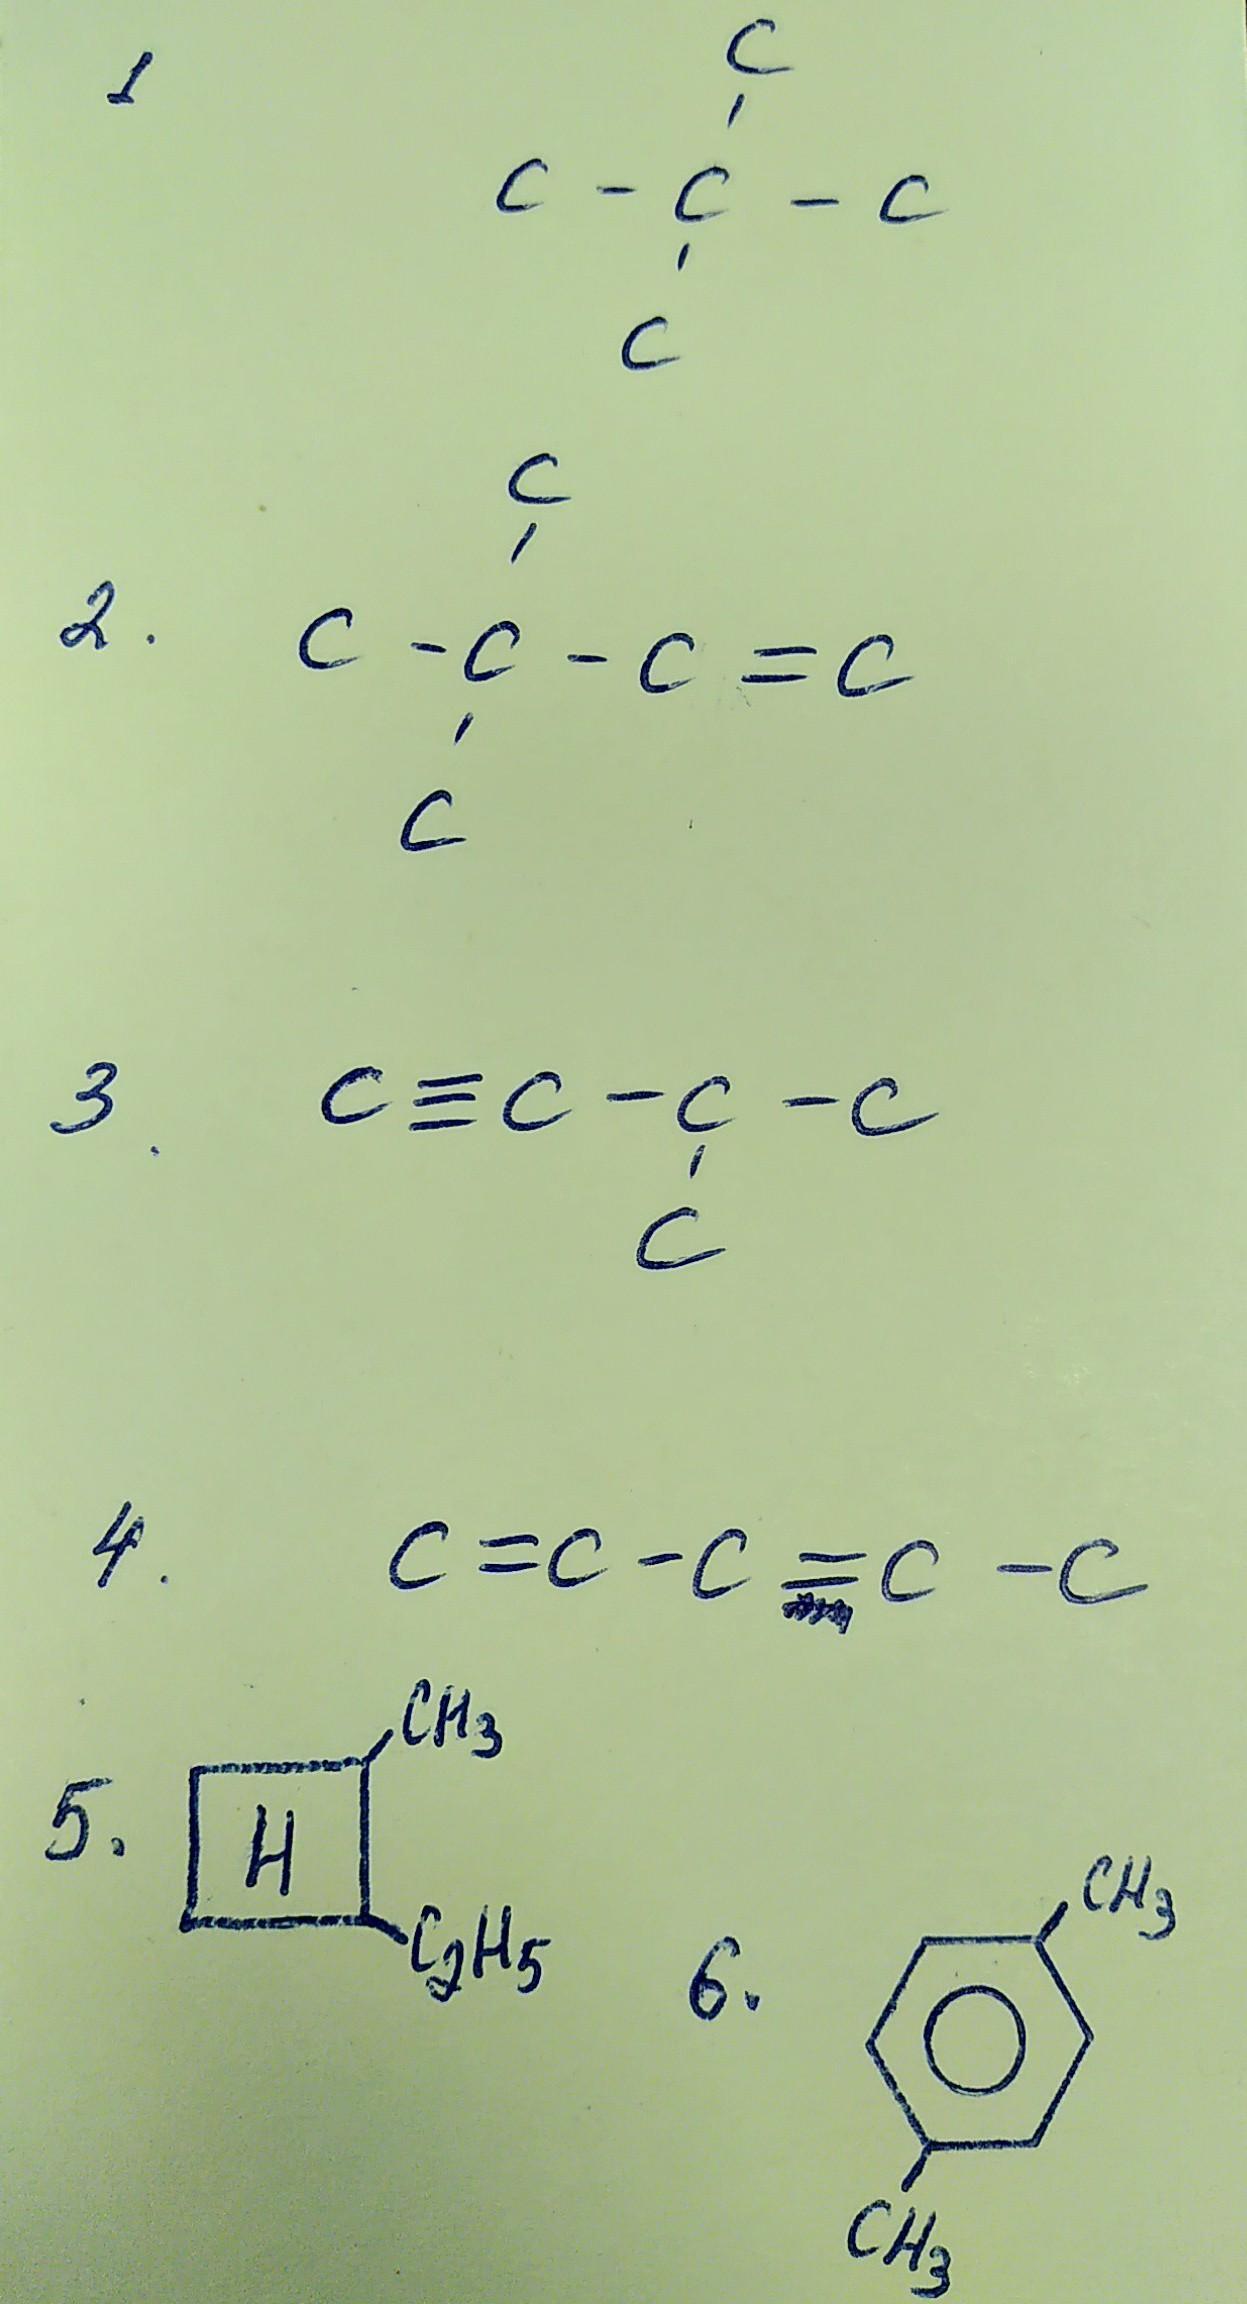 1
C
C - C - C
C
C
2. C - C - C = C
C
3. C ≡ C - C - C
C
4. C = C - C = C - C
CH3
5. H
C2H5
6.
CH3
CH3